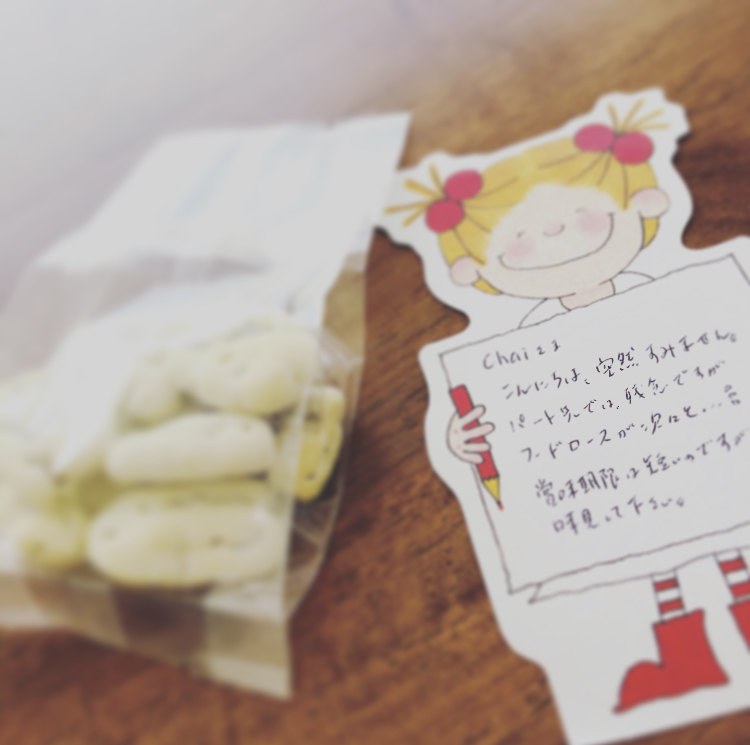 Chaiさま
こんにちは、突然すみません。
パート先では、残念ですが
フードロースが次々と...
賞味期限は短いのですが
味見して下さい。